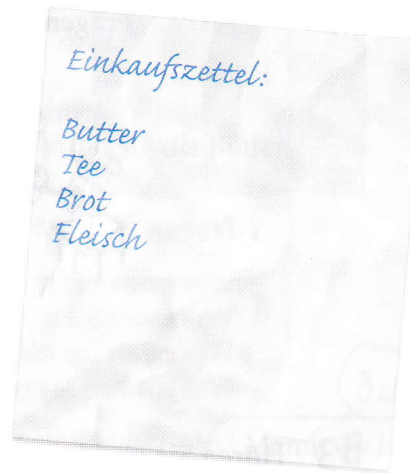 Einkaufszettel:
Butter
Tee
Brot
Fleisch